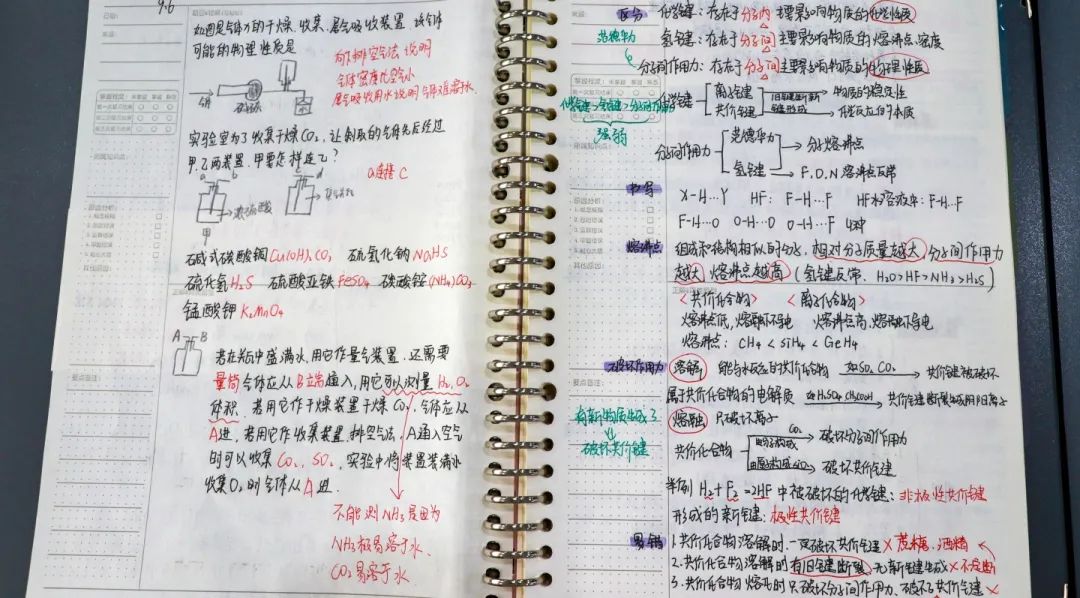 9.6
如图是气体X的干燥、收集、尾气吸收装置,该气体
可能的物理性质是
向下排空气法说明
气体密度比空气小
尾气吸收用水说明气体难溶于水
实验室为了收集干燥CO₂,让制取的气体先后经过
甲乙两装置,甲要怎样连乙?
a连接C
浓硫酸
甲
碱式碳酸铜Cu₂(OH)₂CO₃ 硫氢化钠NaHS
硫化氢H₂S 硫酸亚铁FeSO₄ 碳酸铵(NH₄)₂CO₃
锰酸钾K₂MnO₄
A B
若在其中盛满水,用它作量气装置,还需要
量筒气体应从B端通入,用它可以测量H₂、O₂
体积、若用它作干燥装置干燥CO₂,气体应从
A进,若用它作收集装置,排空气法,A通入空气
时可以收集CO₂、SO₂,实验中将装置装满水
收集O₂时气体从A进.
不能测NH₃是因为
NH₃极易溶于水、
CO₂易溶于水
区分
化学键:存在于分子内主要影响物质的化学性质
氢键:存在于分子间主要影响物质的熔沸点、密度
范德华力
分子间作用力:存在于分子间主要影响物质的物理性质
化学键>氢键>分子间作用力
强弱
化学键
离子键
共价键
旧键断裂新
键形成
物质的稳定性
化学反应的本质
分子间作用力
范德华力
氢键
分子熔沸点
F、O、N熔沸点反常
书写
X-H…Y HF: F-H…F HF水溶液中:F-H…F
F-H…O O-H…O O-H…F 4种
熔沸点
组成和结构相似的分子,相对分子质量越大,分子间作用力
越大,熔沸点越高(氢键反常、H₂O>HF>NH₃>H₂S)
<共价化合物> <离子化合物>
熔沸点低,熔融不导电 熔沸点高,熔融导电
熔沸点: CH₄ < SiH₄ < GeH₄
破坏作用力
溶解: 能与水反应的共价化合物 如SO₂ CO₂ 共价键被破坏
属于共价化合物的电解质 如H₂SO₄ CH₃COOH 共价键断裂生成阴阳离子
有新物质生成了
破坏共价键
熔融: 只破坏离子
共价化合物
由分子构成 CO₂ 破坏分子间作用力
由原子构成SiO₂ 破坏共价键
举例 H₂+F₂=2HF 中被破坏的化学键:非极性共价键
形成的新键:极性共价键
易错
1.共价化合物溶解时,一定破坏共价键 × 蔗糖、酒精
2.共价化合物溶解时有旧键断裂无新键生成 ×
3.共价化合物熔化时只破坏分子间作用力、破坏了共价键 ×